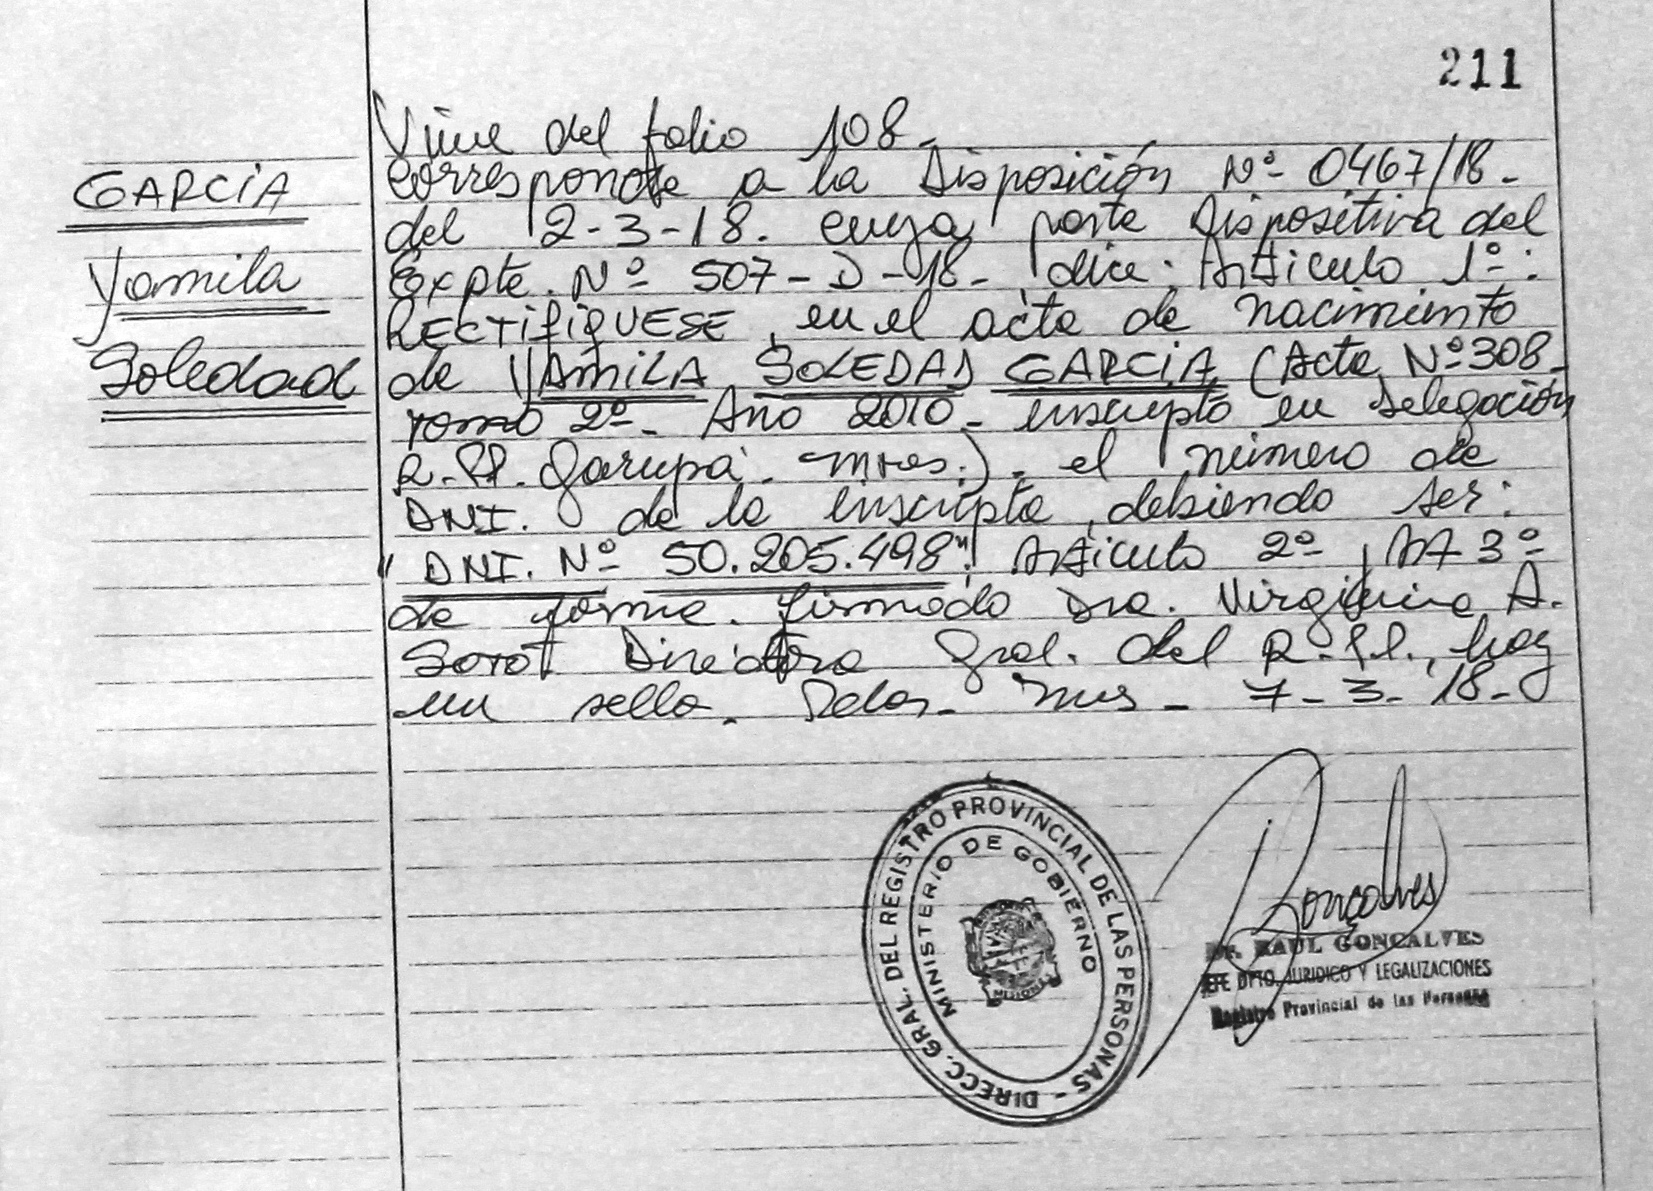 211
GARCIA
Yamila
Soledad
Viene del folio 108.
Corresponde a la Disposición Nº 0467/18-
del 2-3-18. cuya parte dispositiva del
Expte. Nº 507-D-18-, dice: Artículo 1º:
RECTIFIQUESE, en el acta de nacimiento
de YAMILA SOLEDAD GARCIA (Acta Nº 308-
Tomo 2º- Año 2010- inscripto en Delegación
R.PP. Garupá- Mnes.)- el número de
DNI. de la inscripta, debiendo ser:
"DNI. Nº 50.205.498". Artículo 2º 3º
de forma. firmado Dra. Virginia A.
Soto Directora Gral. del R.P.P., hay
un sello. Pdas- Mnes- 7-3-18-
DIRECC. GRAL. DEL REGISTRO PROVINCIAL DE LAS PERSONAS -
MINISTERIO DE GOBIERNO
MISIONES
Gonçalves
Dr. RAUL GONCALVES
JEFE DPTO. JURIDICO Y LEGALIZACIONES
Registro Provincial de las Personas